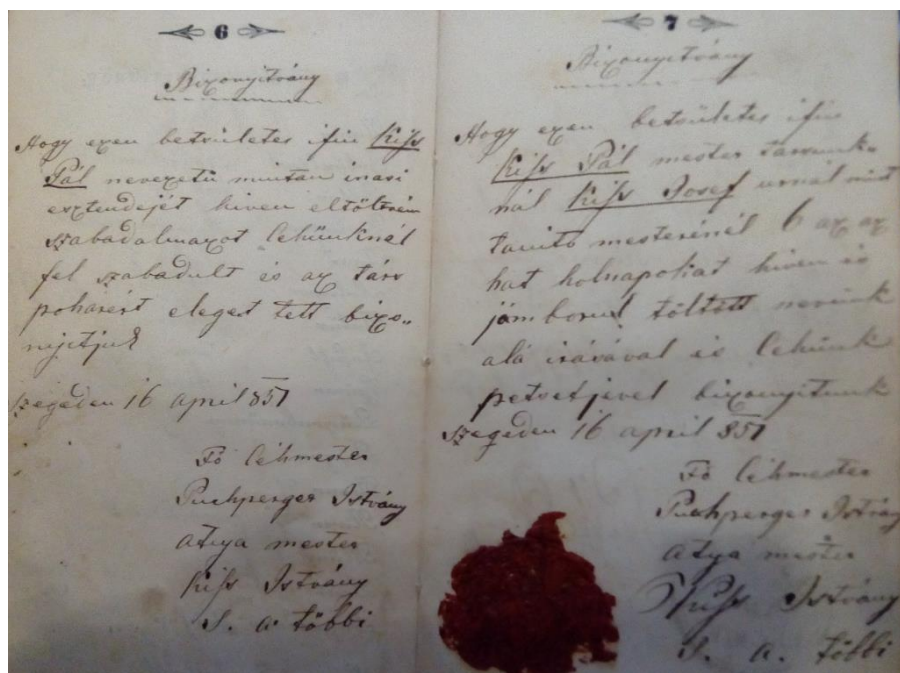 6
Bizonyitvány
Hogy ezen betsületes ifiu Kiss
Pál nevezetü miután inasi
esztendejét hiven eltöltvén
szabadalmazot Céhünknél
fel szabadult és az társ
poharért eleget tett bizo„
nyitjuk
Szegeden 16 april 851
Fö Céhmester
Puchperger István
atya mester
Kiss István
S. a többi
7
Bizonyitvány
Hogy ezen betsületes ifiu
Kiss Pál mester társunk„
nál Kiss Josef urnál mint
tanitó mesterénél 6 az az
hat holnapokat hiven és
jámborul töltött nevünk
alá irásával és Céhünk
petsetjével bizonyitunk
Szegeden 16 april 851
Fö Céhmester
Puchperger István
atya mester
Kiss István
S. a. többi